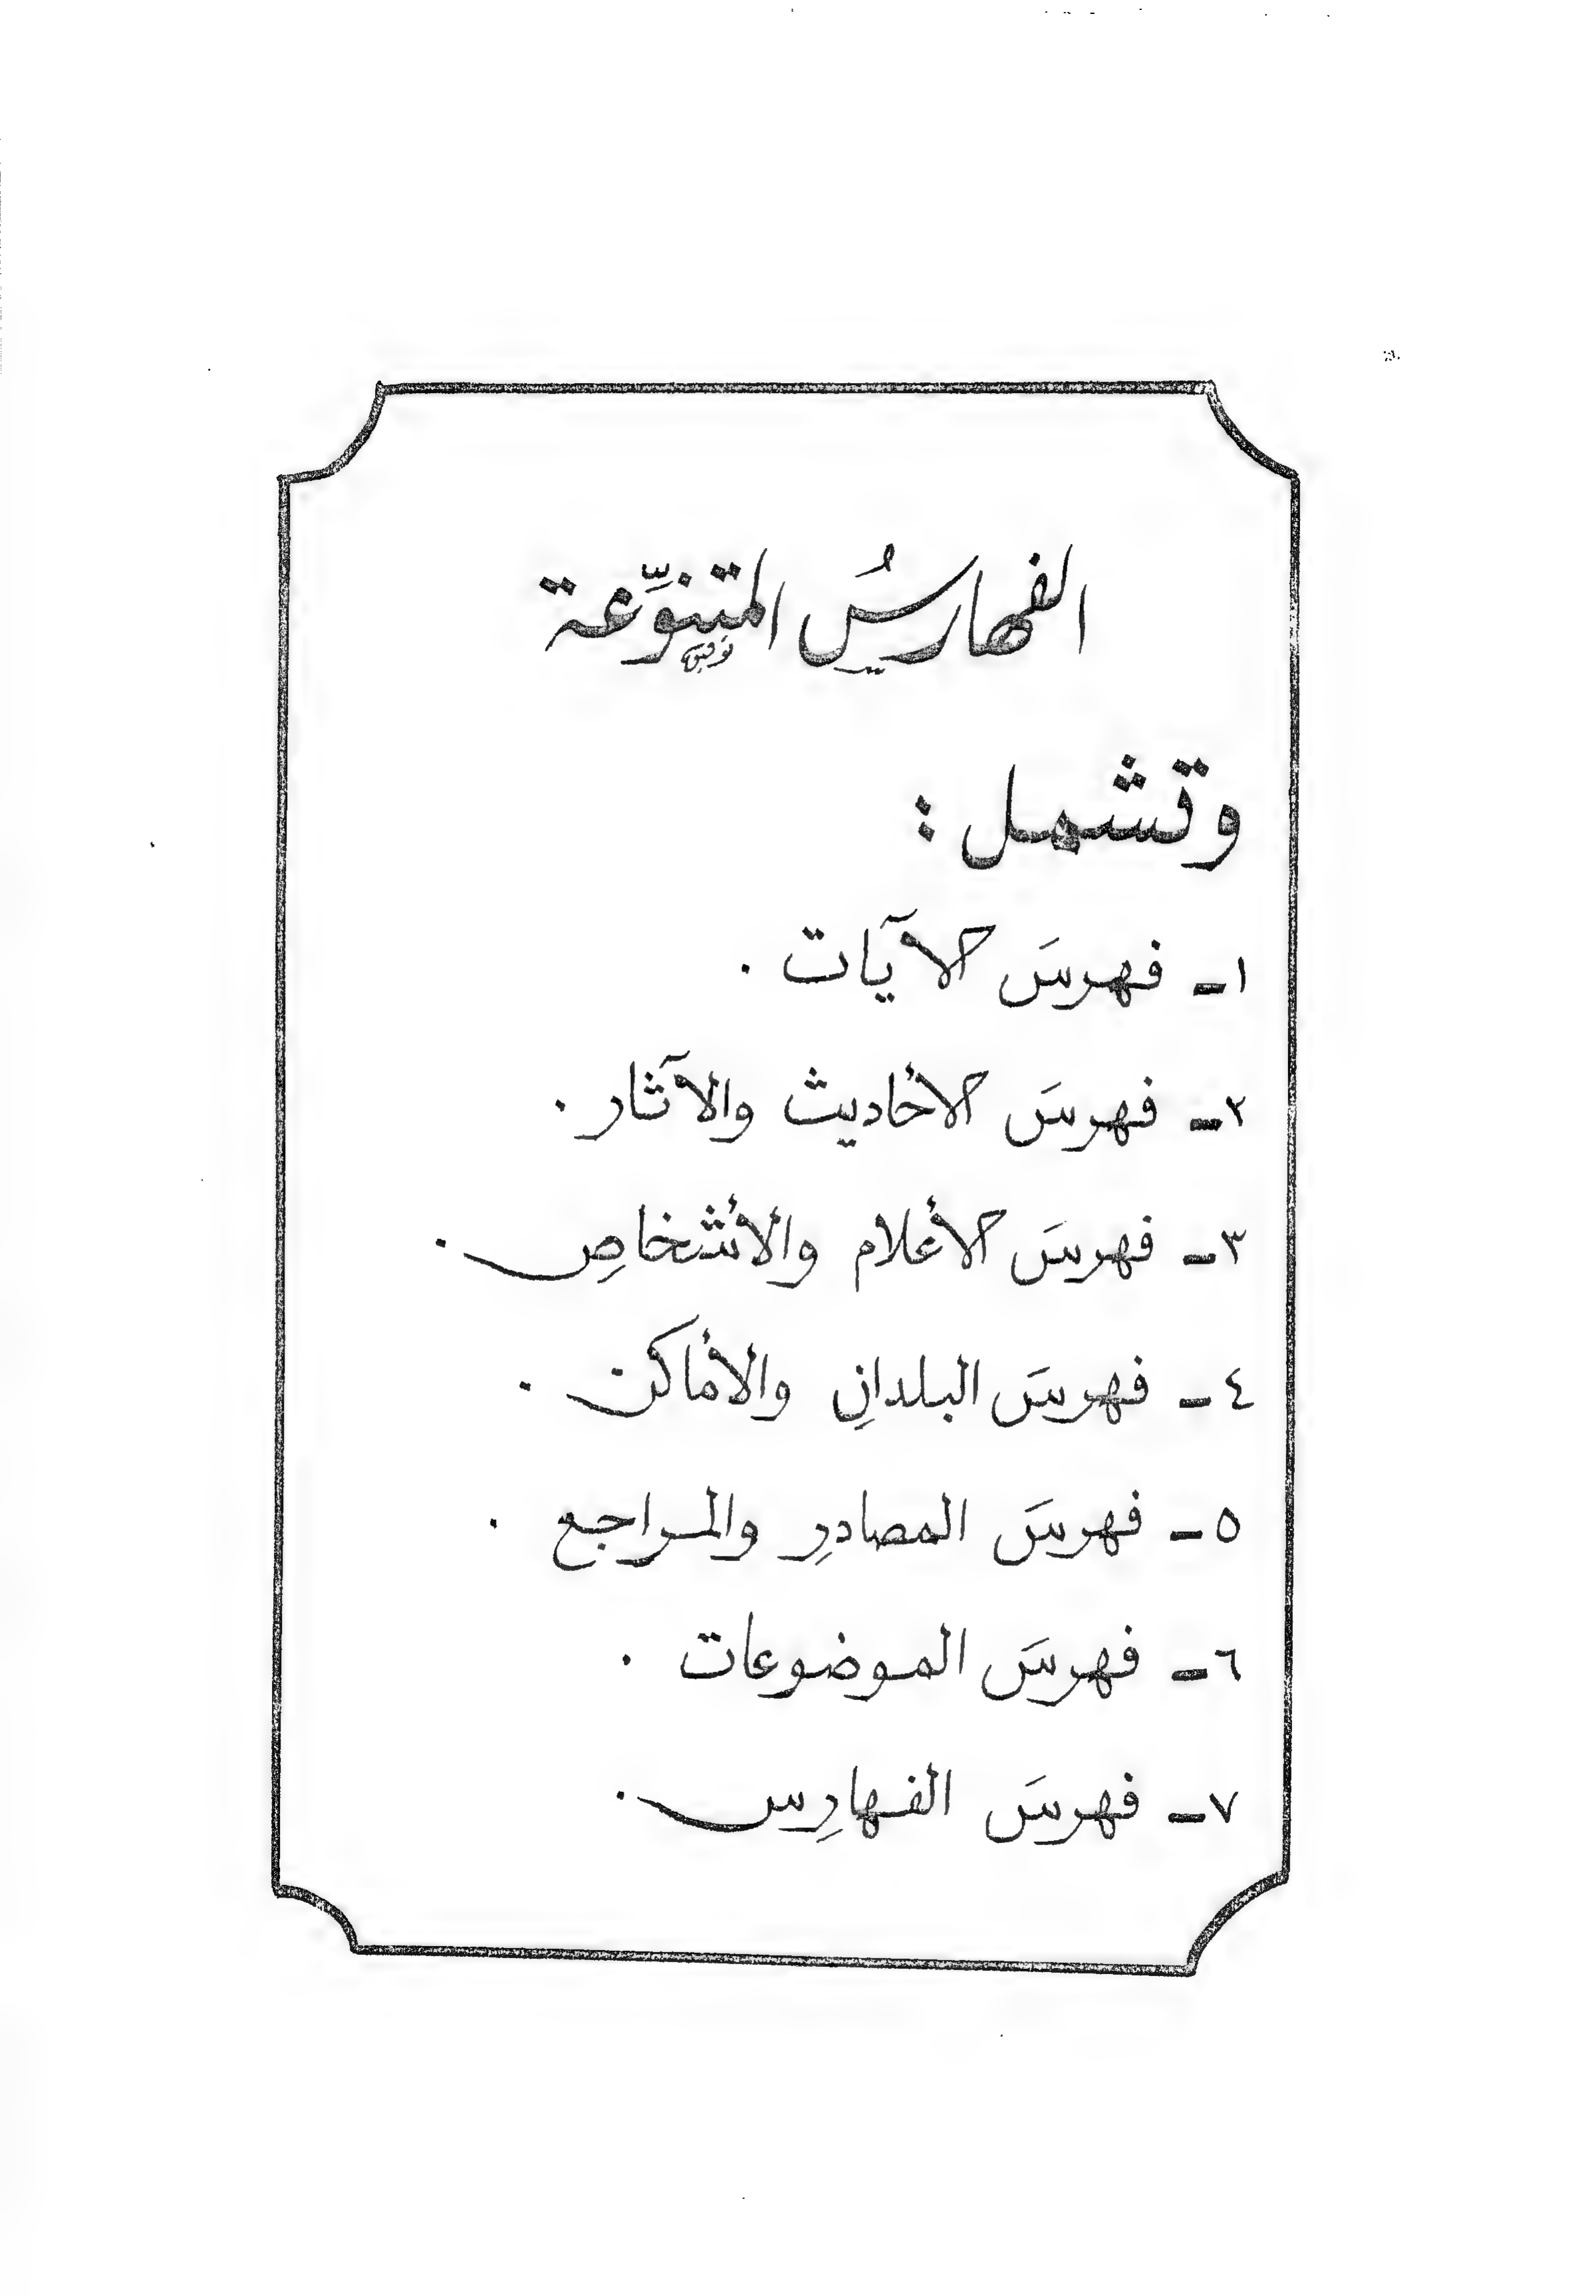 الفهارسُ المتنوِّعة
توفيق
وتشمل :
١ـ فهرسَ الآيات .
٢ـ فهرسَ الأحاديث والآثار .
٣ـ فهرسَ الأعلام والأشخاصِ .
٤ـ فهرسَ البلدانِ والأماكن .
٥ـ فهرسَ المصادرِ والمراجع .
٦ـ فهرسَ الموضوعات .
٧ـ فهرسَ الفهارِس .